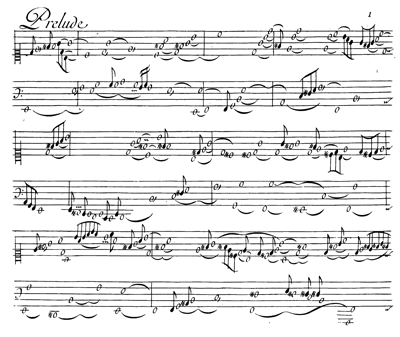 Prelude
1